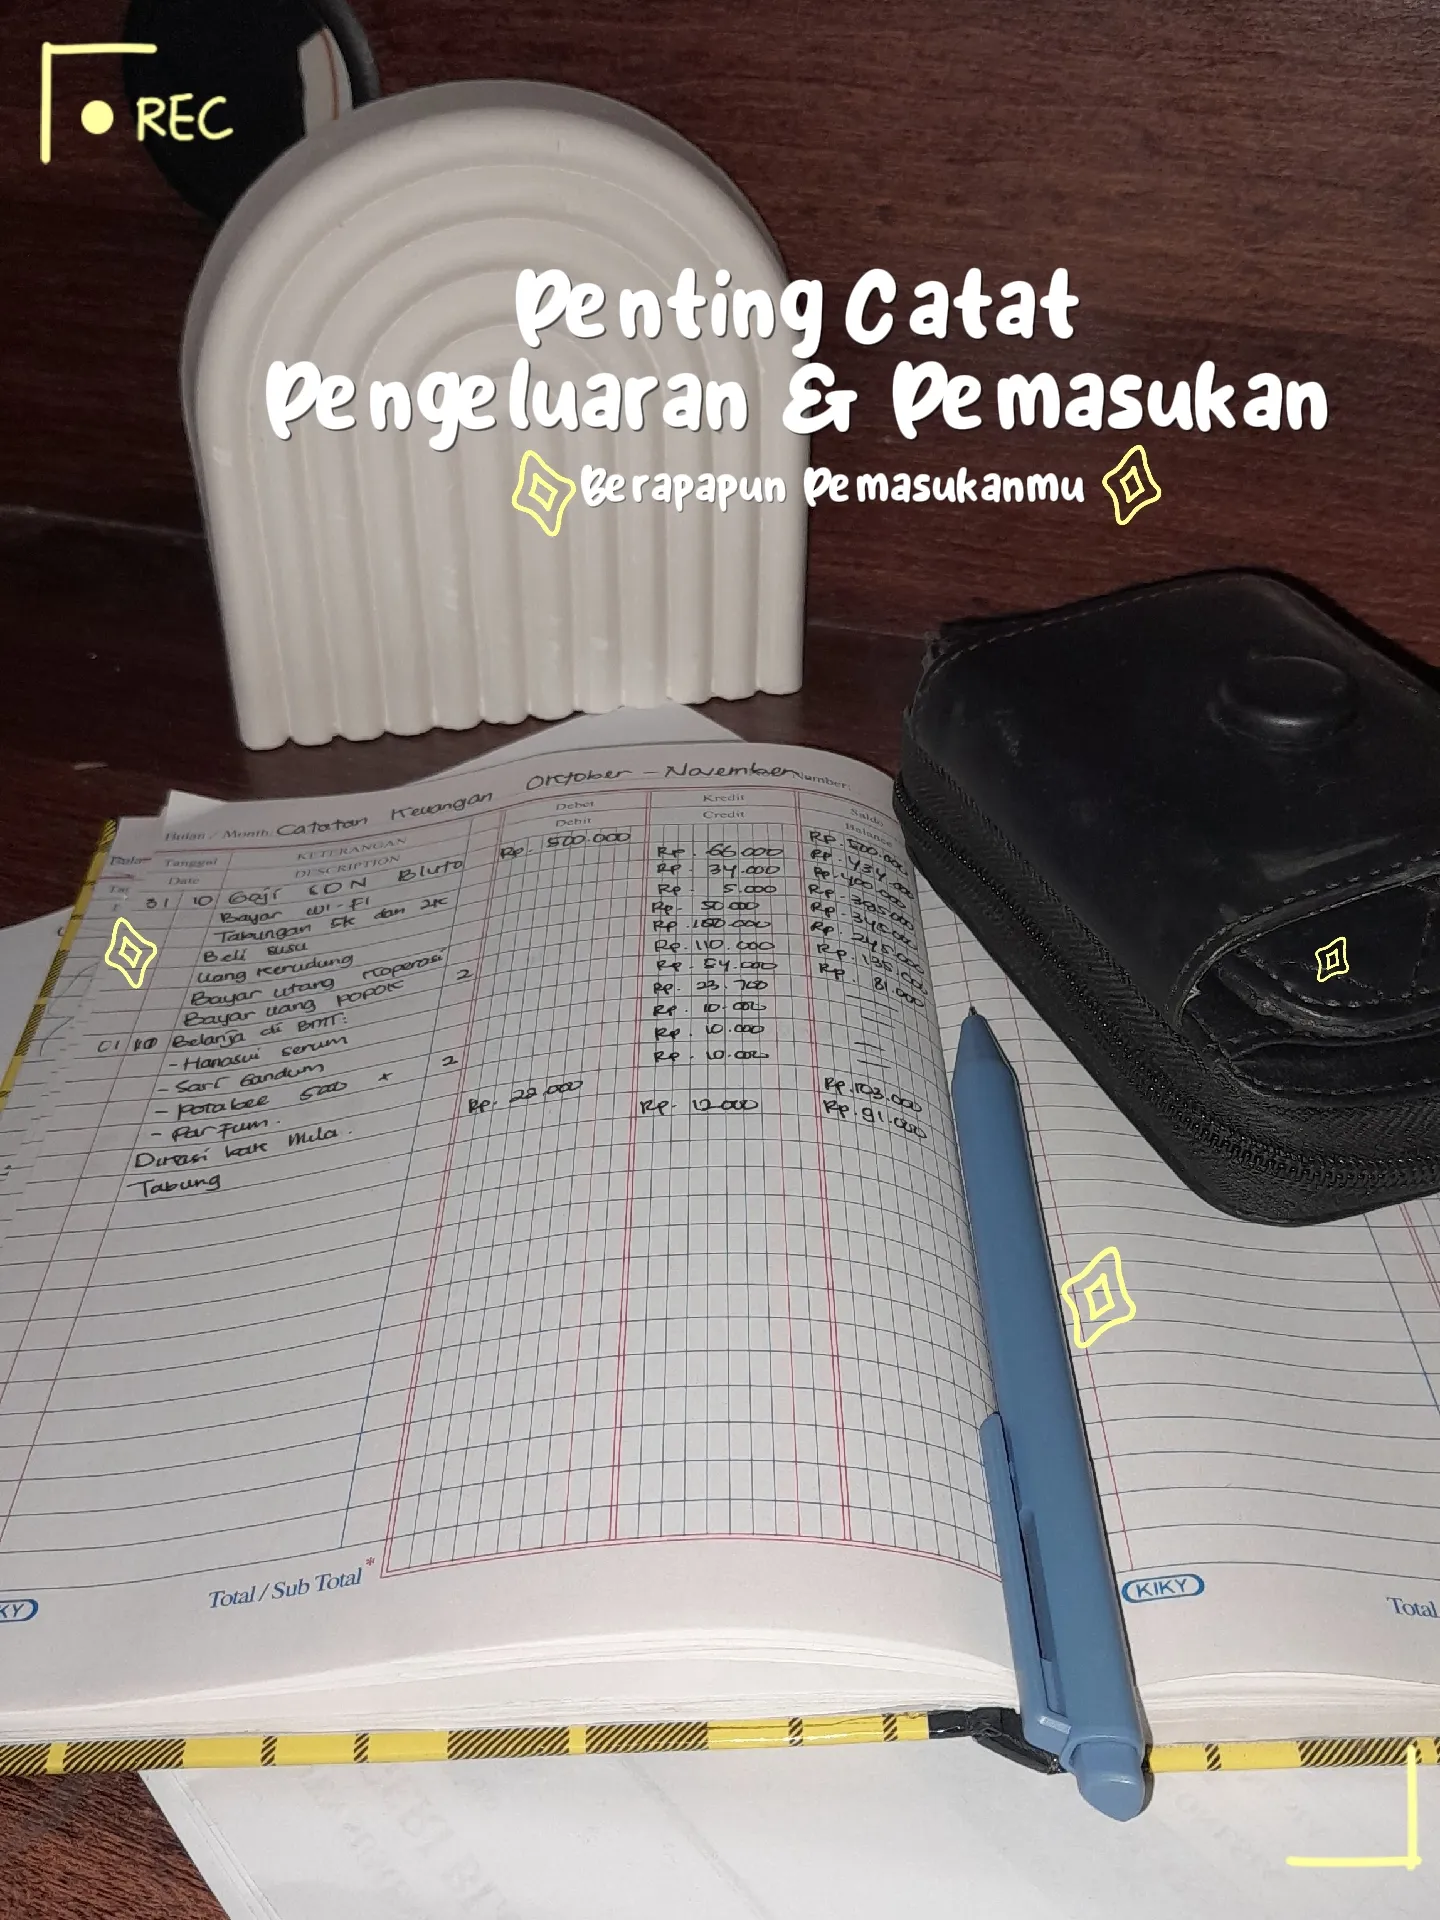 REC
Penting Catat
Pengeluaran & Pemasukan
Berapapun Pemasukanmu
Bulan / Month: Catatan Keuangan Oktober - November Number:
Tanggal KETERANGAN Debet Kredit Saldo
Date DESCRIPTION Debit Credit Balance
31 10 Gaji SDN Bluto Rp. 500.000 Rp. 500.000
Bayar Wi-Fi Rp. 66.000 Rp. 434.000
Tabungan 5k dan 2k Rp. 34.000 Rp. 400.000
Beli susu Rp. 5.000 Rp. 395.000
Uang Kerudung Rp. 50.000 Rp. 345.000
Bayar utang Koperasi Rp. 100.000 Rp. 245.000
Bayar uang popok 2 Rp. 110.000 Rp. 135.000
01 Belanja di BMT: Rp. 54.000 Rp. 81.000
- Hanasui serum Rp. 23.700
- Sari Gandum Rp. 10.000
- Potabee 500 x 2 Rp. 10.000
- Parfum. Rp. 10.000
kak Mila. Rp. 22.000 Rp. 103.000
Tabung Rp. 12.000 Rp. 91.000
Total / Sub Total *
KY
KIKY
Total